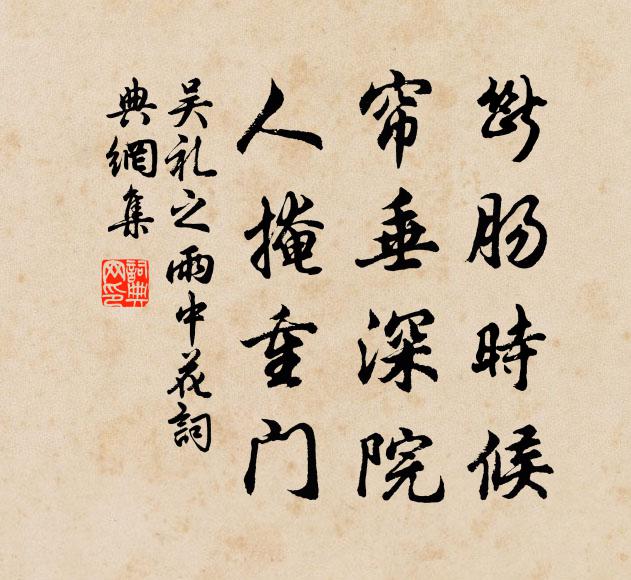 断肠時候
帘垂深院
人掩重门
吴礼之雨中花詞
典網集
詞典
网印